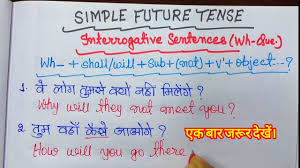 SIMPLE FUTURE TENSE
Interrogative Sentences (Wh-Que.)
Wh- + shall/will + Sub + (not) + V¹ + object - - ?
1. वे लोग तुमसे क्यों नहीं मिलेंगे ?
Why will they not meet you ?
2. तुम वहाँ कैसे जाओगे ?
एक बार जरूर देखें।
How will you go there